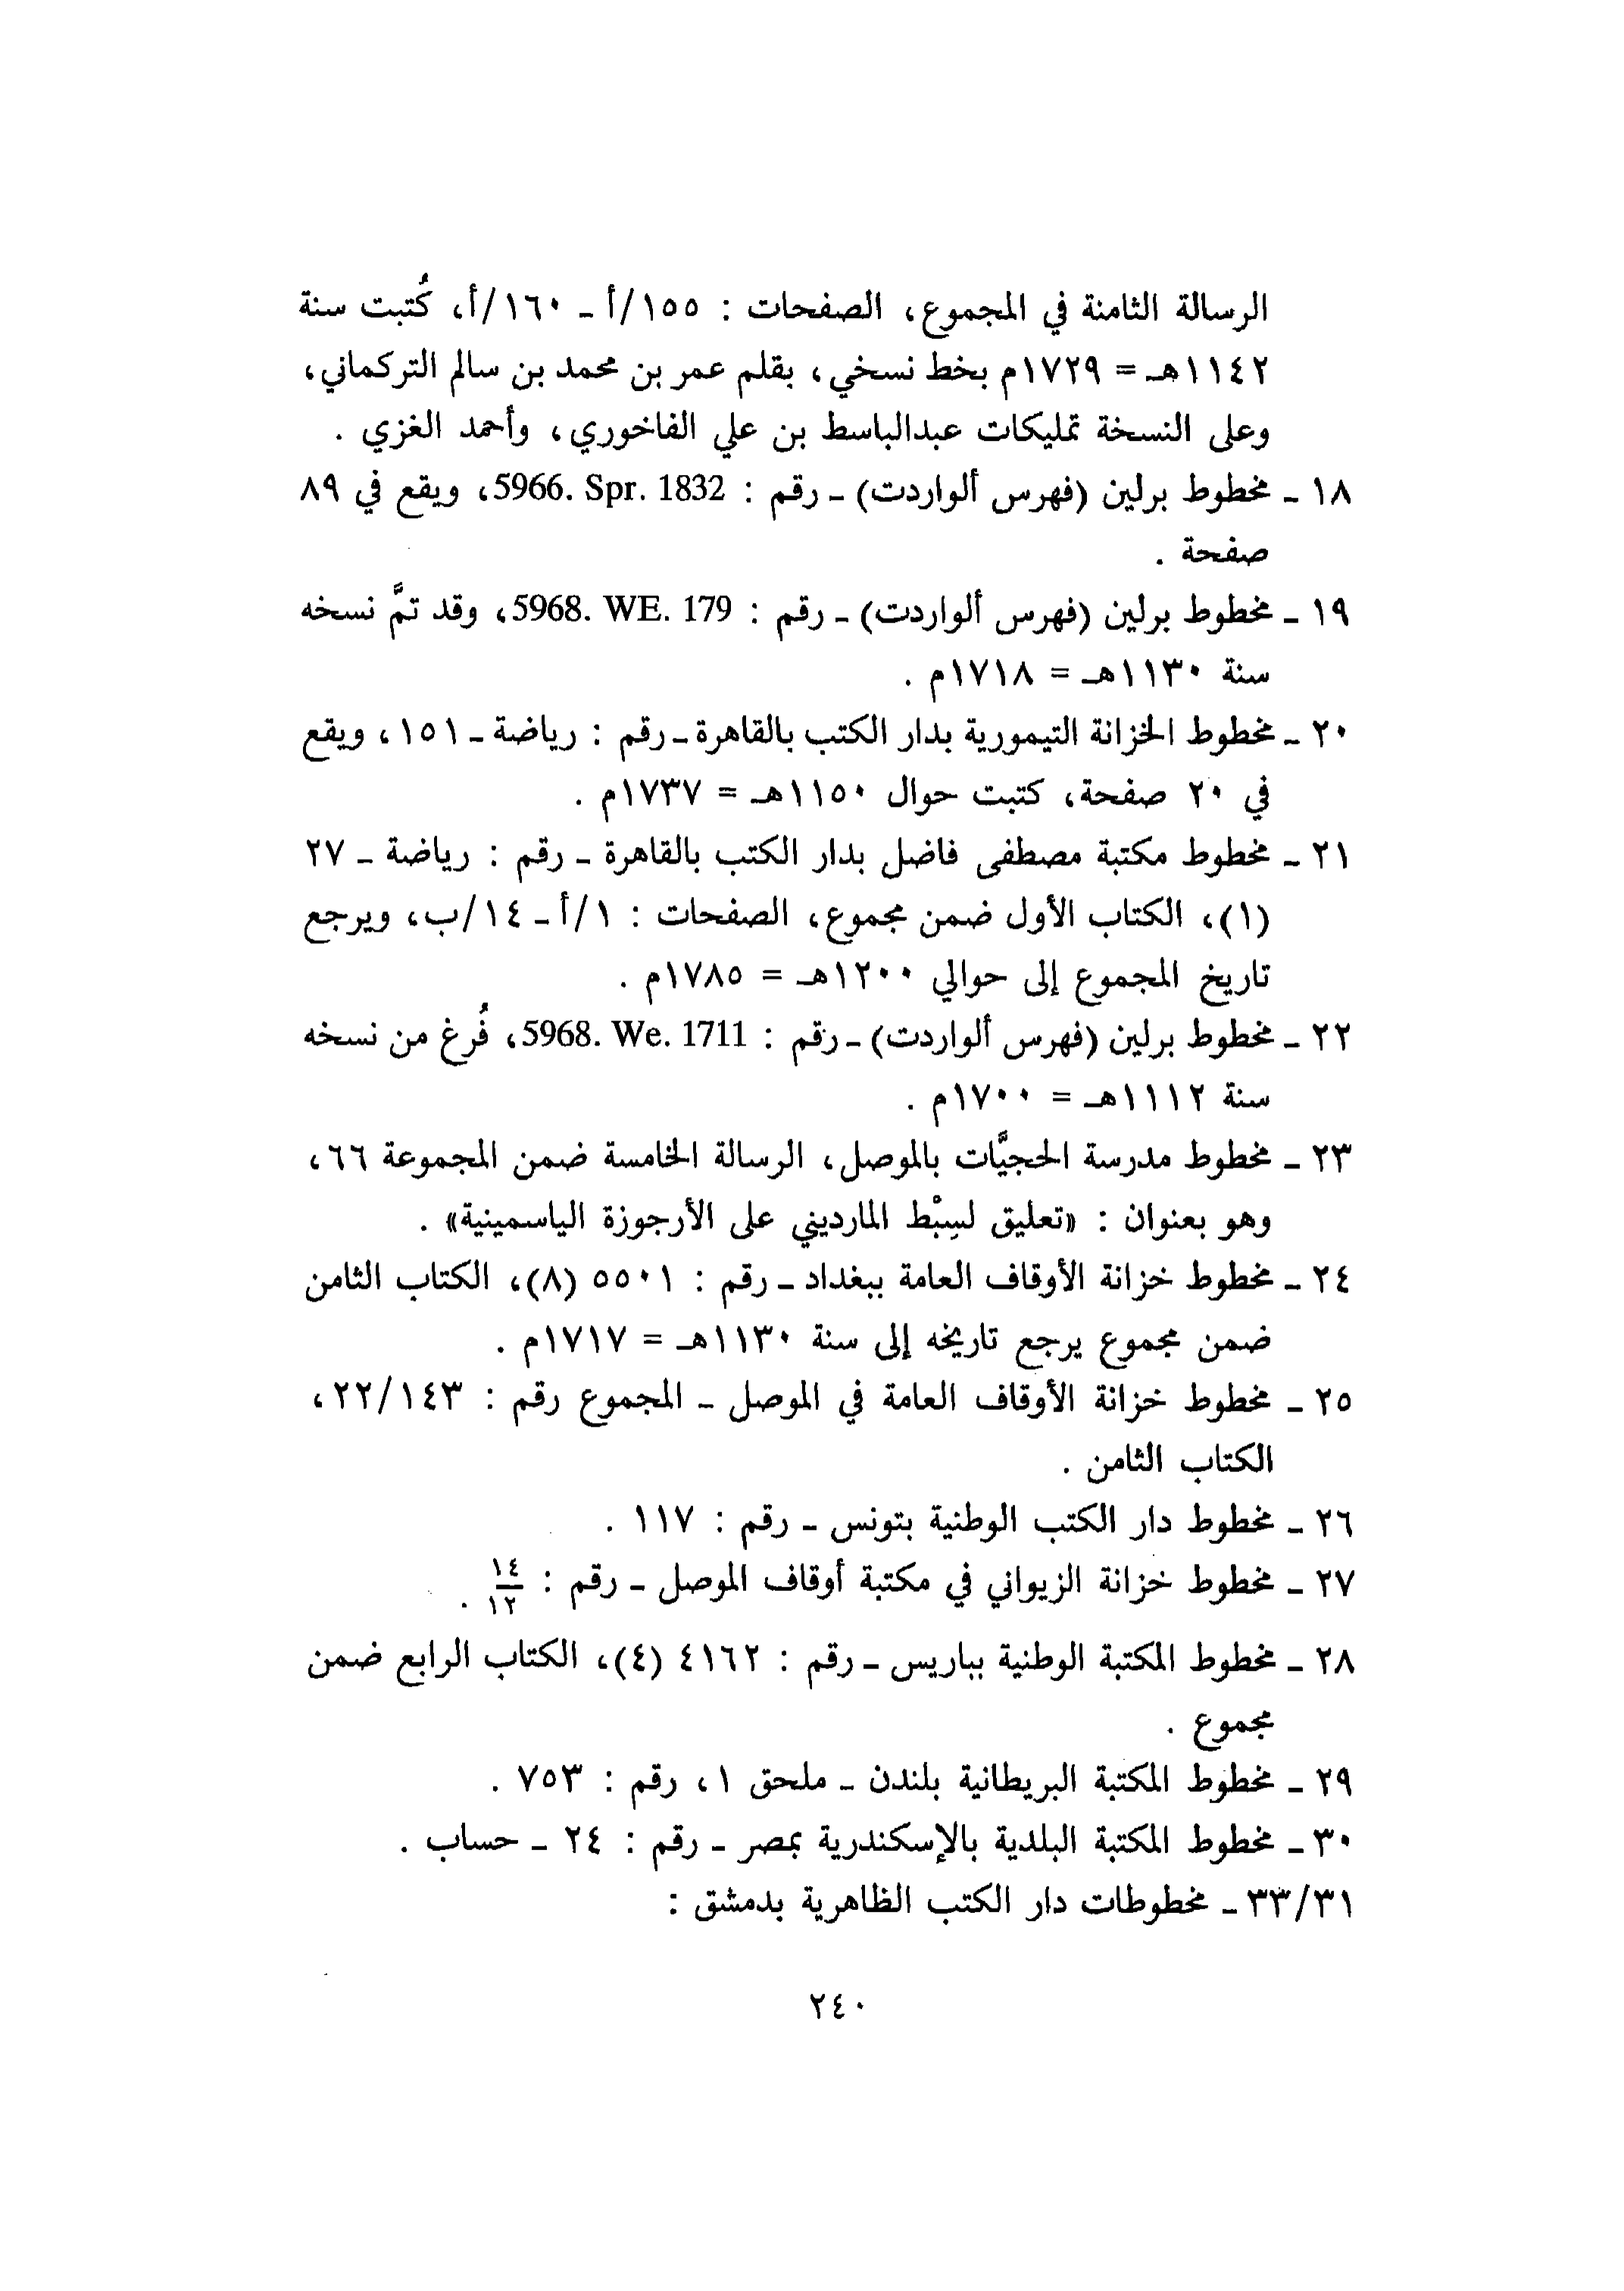 الرسالة الثامنة في المجموع، الصفحات : ١٥٥/أ ـ ١٦٠/أ، كُتبت سنة
١١٤٢هـ = ١٧٢٩م بخط نسخي، بقلم عمر بن محمد بن سالم التركماني،
وعلى النسخة تمليكات عبدالباسط بن علي الفاخوري، وأحمد الغزي .
١٨ ـ مخطوط برلين (فهرس ألواردت) ـ رقم : 5966. Spr. 1832، ويقع في ٨٩
صفحة .
١٩ ـ مخطوط برلين (فهرس ألواردت) ـ رقم : 5968. WE. 179، وقد تمَّ نسخه
سنة ١١٣٠هـ = ١٧١٨م .
٢٠ ـ مخطوط الخزانة التيمورية بدار الكتب بالقاهرة ـ رقم : رياضة ـ ١٥١، ويقع
في ٢٠ صفحة، كتبت حوال ١١٥٠هـ = ١٧٣٧م .
٢١ ـ مخطوط مكتبة مصطفى فاضل بدار الكتب بالقاهرة ـ رقم : رياضة ـ ٢٧
(١)، الكتاب الأول ضمن مجموع، الصفحات : ١/أ ـ ١٤/ب، ويرجع
تاريخ المجموع إلى حوالي ١٢٠٠هـ = ١٧٨٥م .
٢٢ ـ مخطوط برلين (فهرس ألواردت) ـ رقم : 5968. We. 1711، فُرغ من نسخه
سنة ١١١٢هـ = ١٧٠٠م .
٢٣ ـ مخطوط مدرسة الحجيَّات بالموصل، الرسالة الخامسة ضمن المجموعة ٦٦،
وهو بعنوان : «تعليق لسِبْط المارديني على الأرجوزة الياسمينية» .
٢٤ ـ مخطوط خزانة الأوقاف العامة ببغداد ـ رقم : ٥٥٠١ (٨)، الكتاب الثامن
ضمن مجموع يرجع تاريخه إلى سنة ١١٣٠هـ = ١٧١٧م .
٢٥ ـ مخطوط خزانة الأوقاف العامة في الموصل ـ المجموع رقم : ٢٢/١٤٣،
الكتاب الثامن .
٢٦ ـ مخطوط دار الكتب الوطنية بتونس ـ رقم : ١١٧ .
٢٧ ـ مخطوط خزانة الزيواني في مكتبة أوقاف الموصل ـ رقم : ١٤/١٢ .
٢٨ ـ مخطوط المكتبة الوطنية بباريس ـ رقم : ٤١٦٢ (٤)، الكتاب الرابع ضمن
مجموع .
٢٩ ـ مخطوط المكتبة البريطانية بلندن ـ ملحق ١، رقم : ٧٥٣ .
٣٠ ـ مخطوط المكتبة البلدية بالإسكندرية بمصر ـ رقم : ٢٤ ـ حساب .
٣٣/٣١ ـ مخطوطات دار الكتب الظاهرية بدمشق :
٢٤٠